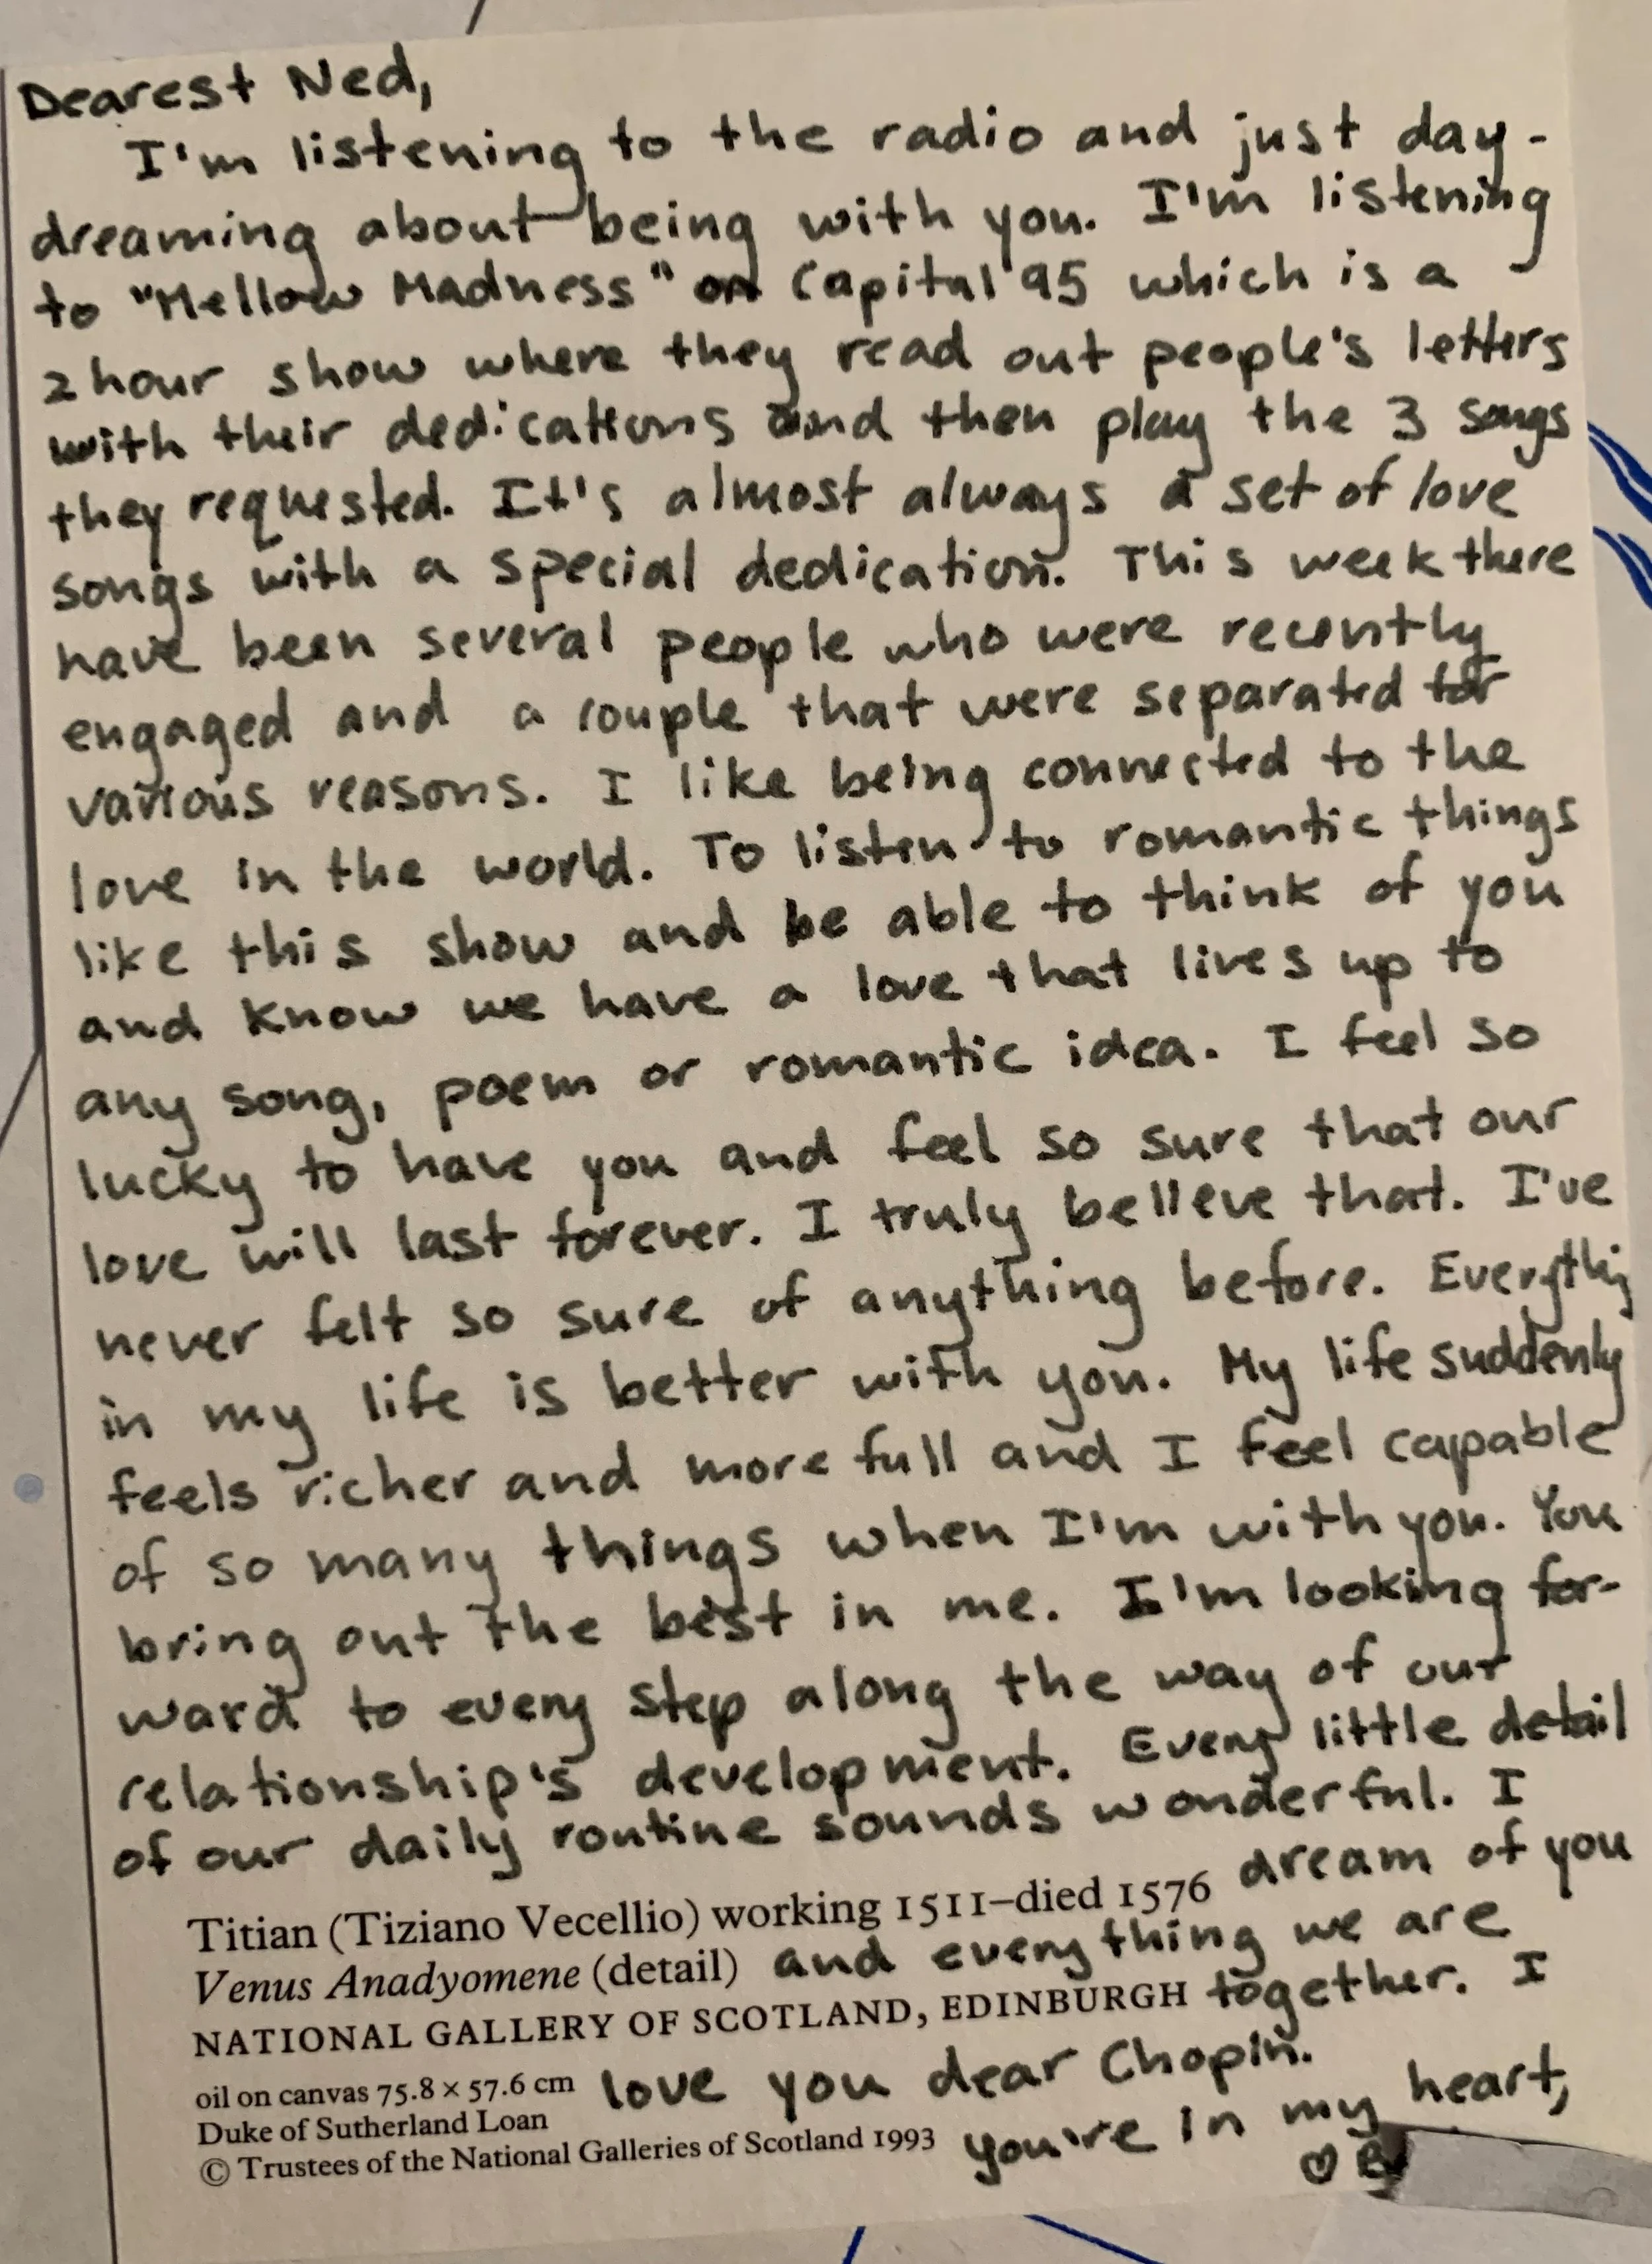 Dearest Ned,
I'm listening to the radio and just day-
dreaming about being with you. I'm listening
to "Mellow Madness" on Capital 95 which is a
2 hour show where they read out people's letters
with their dedications and then play the 3 songs
they requested. It's almost always a set of love
songs with a special dedication. This week there
have been several people who were recently
engaged and a couple that were separated for
various reasons. I like being connected to the
love in the world. To listen to romantic things
like this show and be able to think of you
and know we have a love that lives up to
any song, poem or romantic idea. I feel so
lucky to have you and feel so sure that our
love will last forever. I truly believe that. I've
never felt so sure of anything before. Everything
in my life is better with you. My life suddenly
feels richer and more full and I feel capable
of so many things when I'm with you. You
bring out the best in me. I'm looking for-
ward to every step along the way of our
relationship's development. Every little detail
of our daily routine sounds wonderful. I
dream of you
Titian (Tiziano Vecellio) working 1511–died 1576
and everything we are
Venus Anadyomene (detail)
together. I
NATIONAL GALLERY OF SCOTLAND, EDINBURGH
love you dear Chopin.
oil on canvas 75.8 × 57.6 cm
Duke of Sutherland Loan
you're in my heart,
© Trustees of the National Galleries of Scotland 1993
♡ B